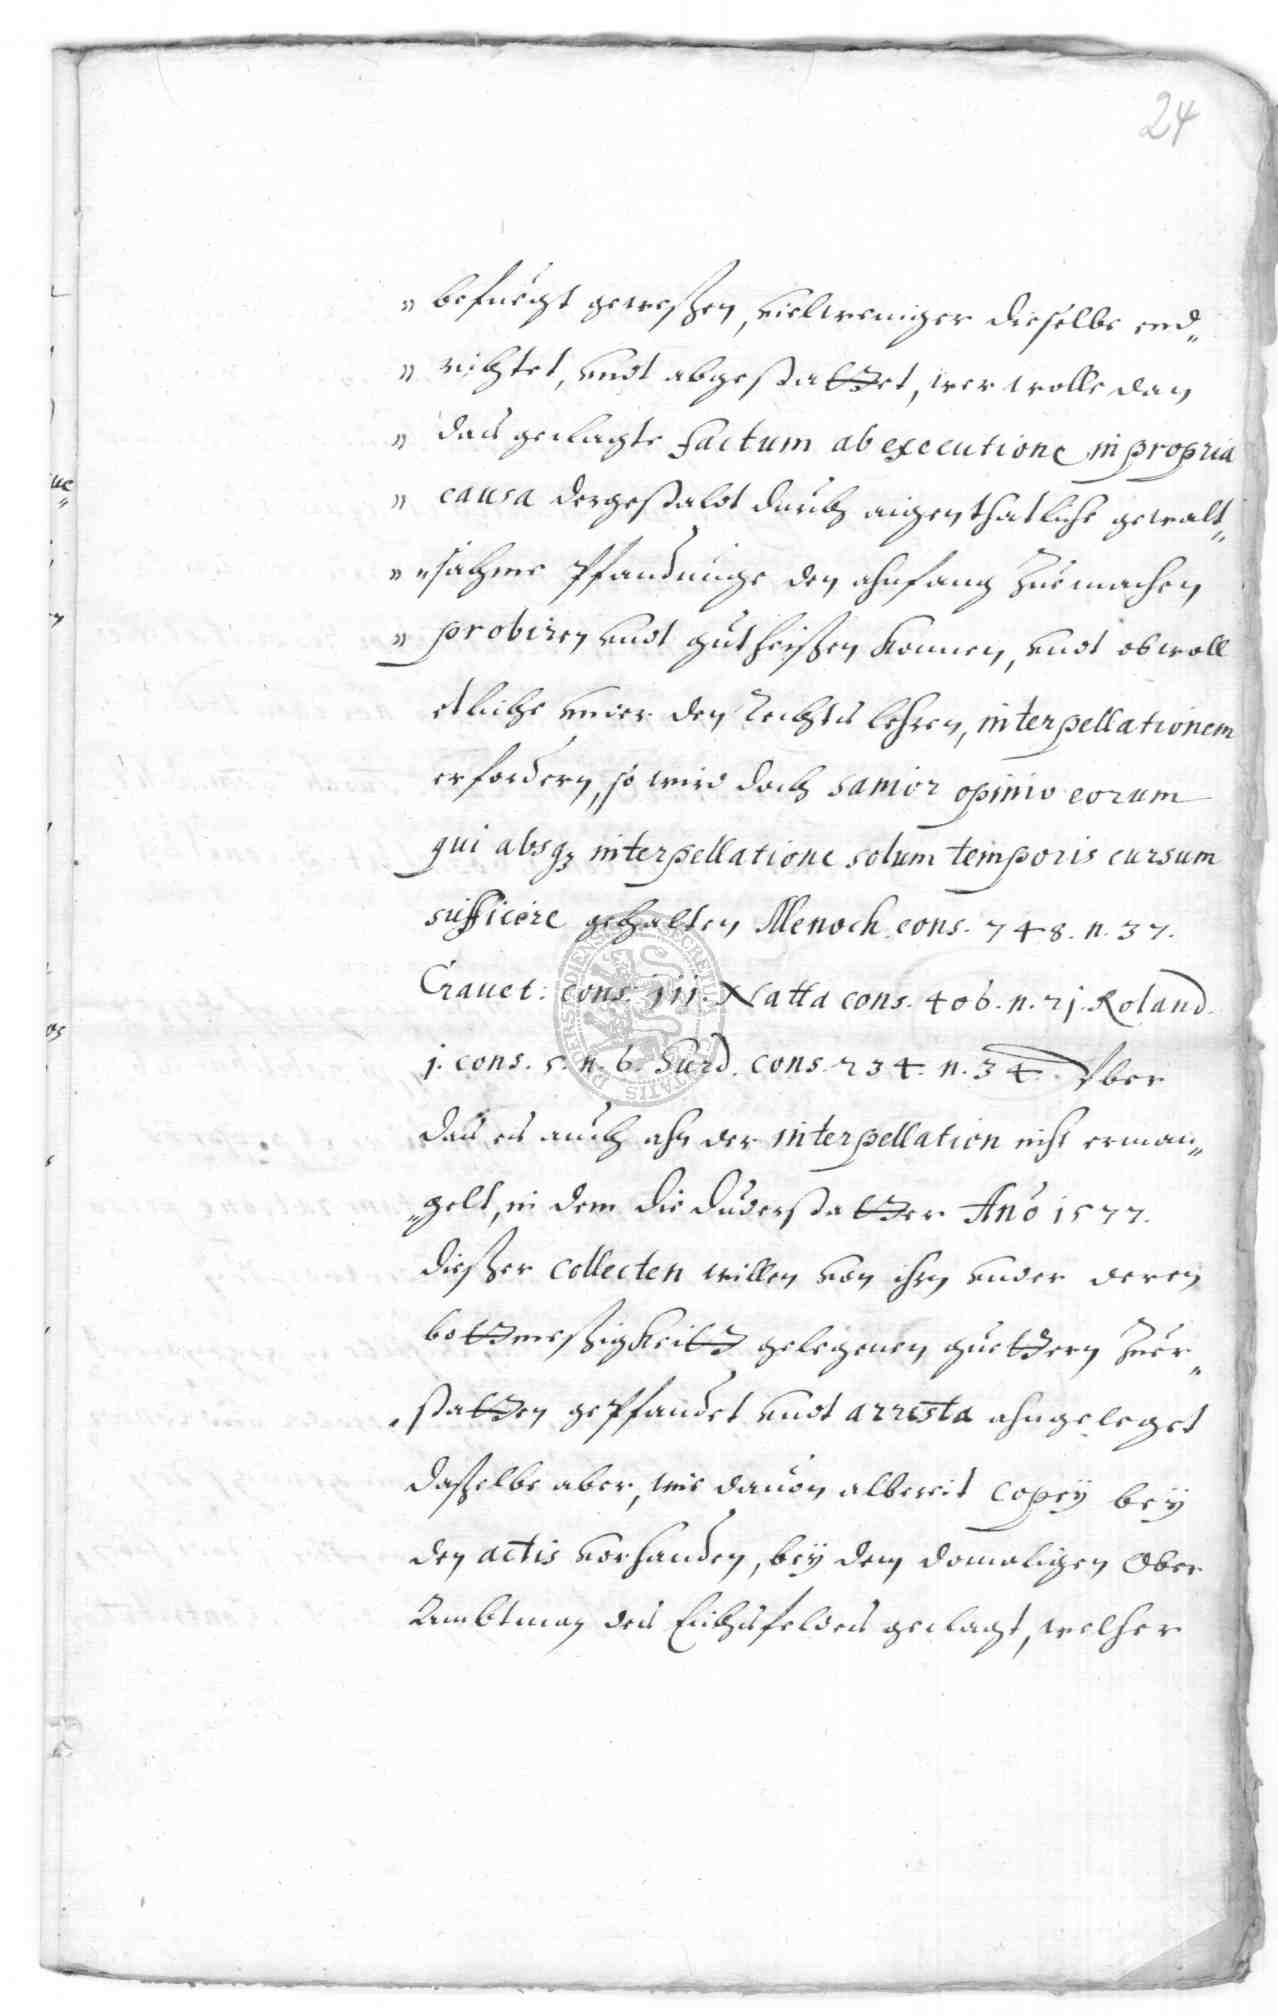 24
„ befuegt geweßen, vielweniger dieselbe end„
„ richtet, undt abgestattet, wer wolle dan
„ das geclagte factum ab executione in propria
„ causa dergestaldt durch aigenthatliche gewalt„
„ „sahme Pfandunge den ahnfang zue machen
„ probiren undt gutheißen konnen, undt obwoll
etliche under den Rechts lehren, interpellationem
erfordern, so wird doch sanior opinio eorum
qui absq; interpellatione solum temporis cursum
sufficere gehalten Menoch. cons. 748. n. 37.
Crauet: cons. 111. Natta cons. 406. n. 21. Roland.
1. cons. 5. n. 6. Surd. cons. 234. n. 34. Vber
das es auch ahn der interpellation nicht erman„
„gelt, in dem die Duderstatter Ano 1577.
dießer collecten willen von ihrn under deren
bottmeßigkeitt gelegenen guettern zuer„
„statten gepfandet undt arresta ahngeleget
daßelbe aber, wie dauon albereit copey bey
den actis vorhanden, bey dem domaligen Ober
Ambtman des Eichsfeldes geclagt, welcher